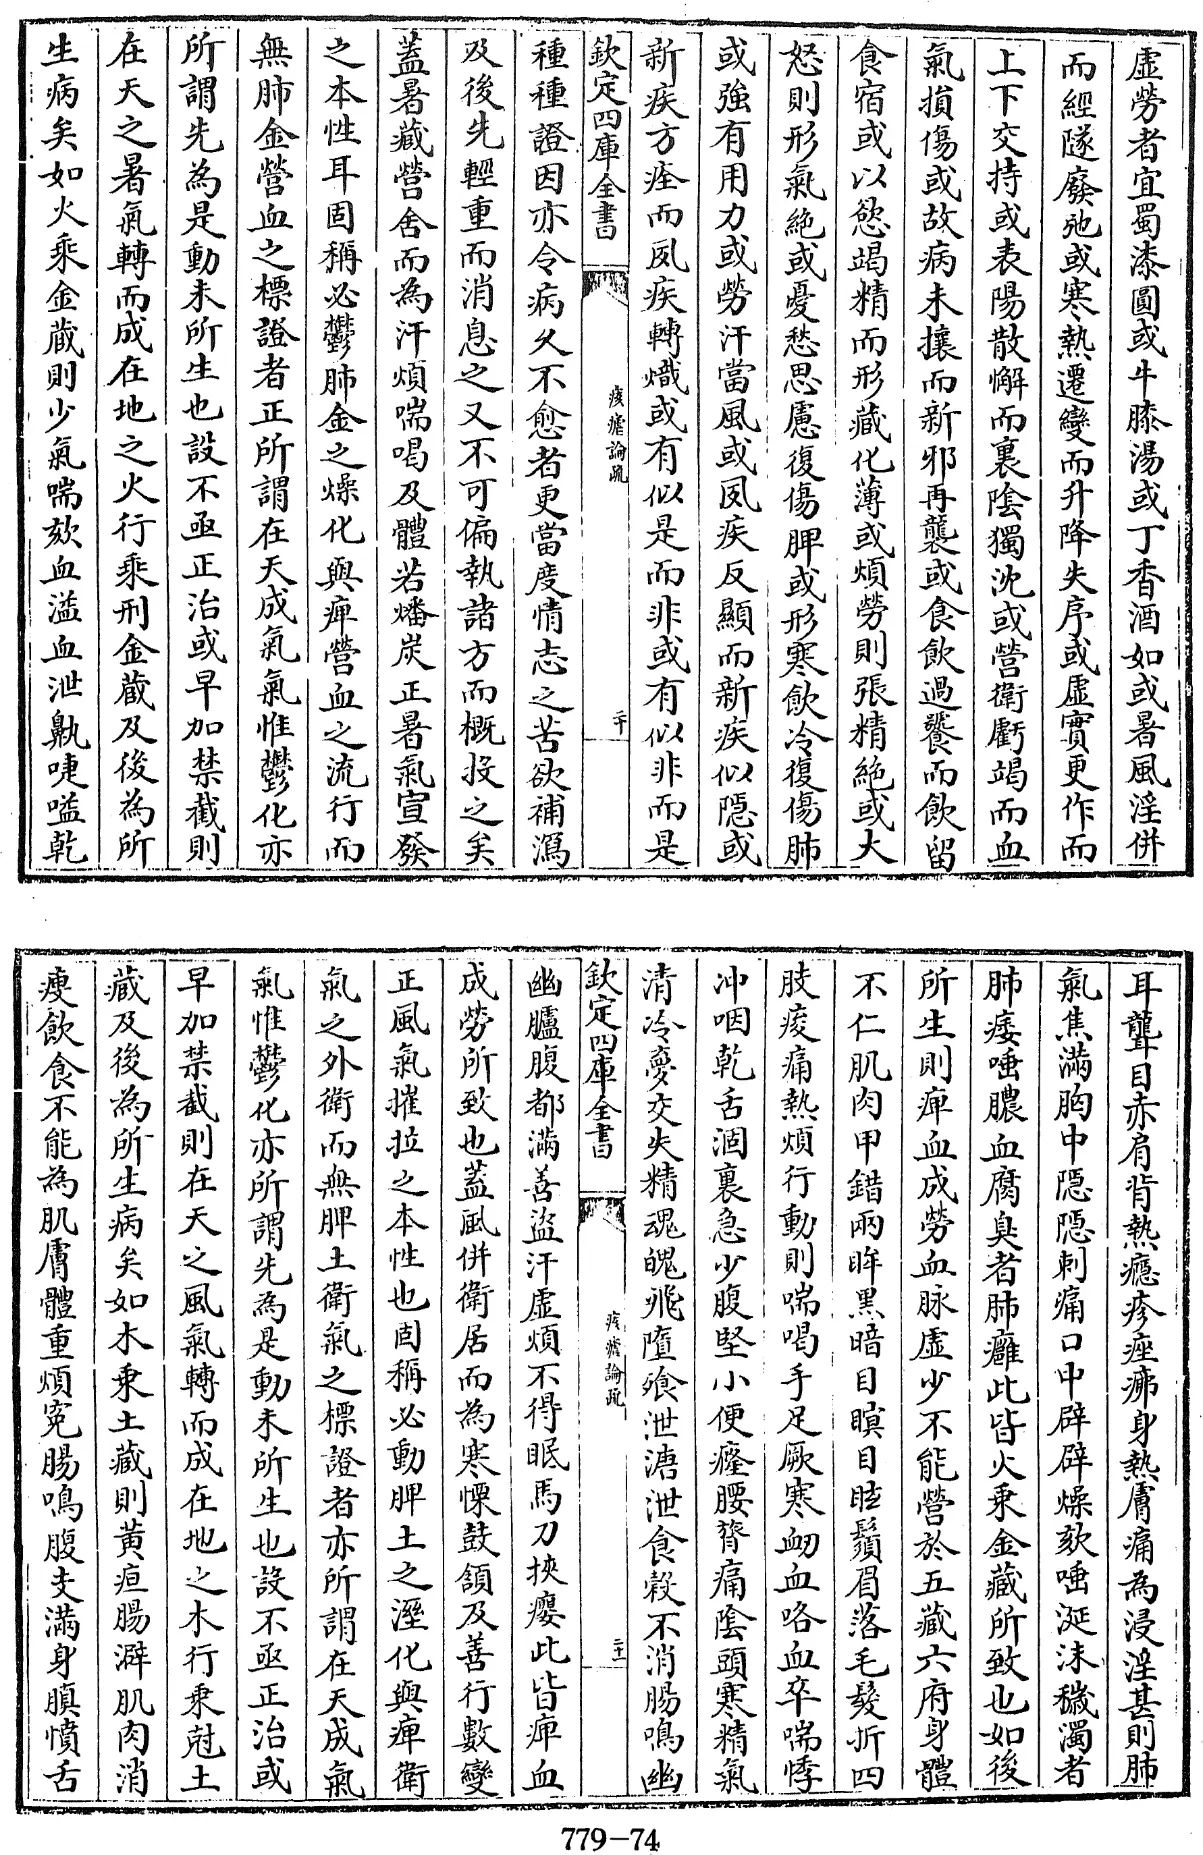 虛勞者宜蜀漆圓或牛膝湯或丁香酒如或暑風淫併
而經隧廢弛或寒熱遷變而升降失序或虛實更作而
上下交持或表陽散懈而裏陰獨沈或營衛虧竭而血
氣損傷或故病未攘而新邪再襲或食飲過饗而飲留
食宿或以慾竭精而形藏化薄或煩勞則張精絕或大
怒則形氣絕或憂愁思慮復傷脾或形寒飲冷復傷肺
或強有用力或勞汗當風或夙疾反顯而新疾似隱或
新疾方痊而夙疾轉熾或有似是而非或有似非而是
欽定四庫全書
痎瘧論疏
二十
種種證因亦令病久不愈者更當度情志之苦欲補瀉
及後先輕重而消息之又不可偏執諸方而概投之矣
蓋暑藏營舍而為汗煩喘喝及體若燔炭正暑氣宣發
之本性耳固稱必鬱肺金之燥化與痺營血之流行而
無肺金營血之標證者正所謂在天成氣氣惟鬱化亦
所謂先為是動未所生也設不亟正治或早加禁截則
在天之暑氣轉而成在地之火行乘刑金藏及後為所
生病矣如火乘金藏則少氣喘欬血溢血泄鼽嚏嗌乾
耳聾目赤肩背熱癮疹痤疿身熱膚痛為浸淫甚則肺
氣焦滿胸中隱隱刺痛口中辟辟燥欬唾涎沫穢濁者
肺痿唾膿血腐臭者肺癰此皆火乘金藏所致也如後
所生則痺血成勞血脉虛少不能營於五藏六府身體
不仁肌肉甲錯兩眸黑暗目瞑目𥆧鬚眉落毛髮折四
肢痠痛熱煩行動則喘喝手足厥寒衂血咯血卒喘悸
沖咽乾舌涸裏急少腹堅小便癃腰膂痛陰頭寒精氣
清冷夢交失精魂魄飛墮飱泄溏泄食穀不消腸鳴幽
欽定四庫全書
痎瘧論疏
二十一
幽臚腹都滿善盜汗虛煩不得眠馬刀挾癭此皆痺血
成勞所致也蓋風併衛居而為寒慄鼓頷及善行數變
正風氣摧拉之本性也固稱必動脾土之溼化與痺衛
氣之外衛而無脾土衛氣之標證者亦所謂在天成氣
氣惟鬱化亦所謂先為是動未所生也設不亟正治或
早加禁截則在天之風氣轉而成在地之木行乘尅土
藏及後為所生病矣如木乘土藏則黃疸腸澼肌肉消
瘦飲食不能為肌膚體重煩冤腸鳴腹支滿身䐜憤舌
779-74